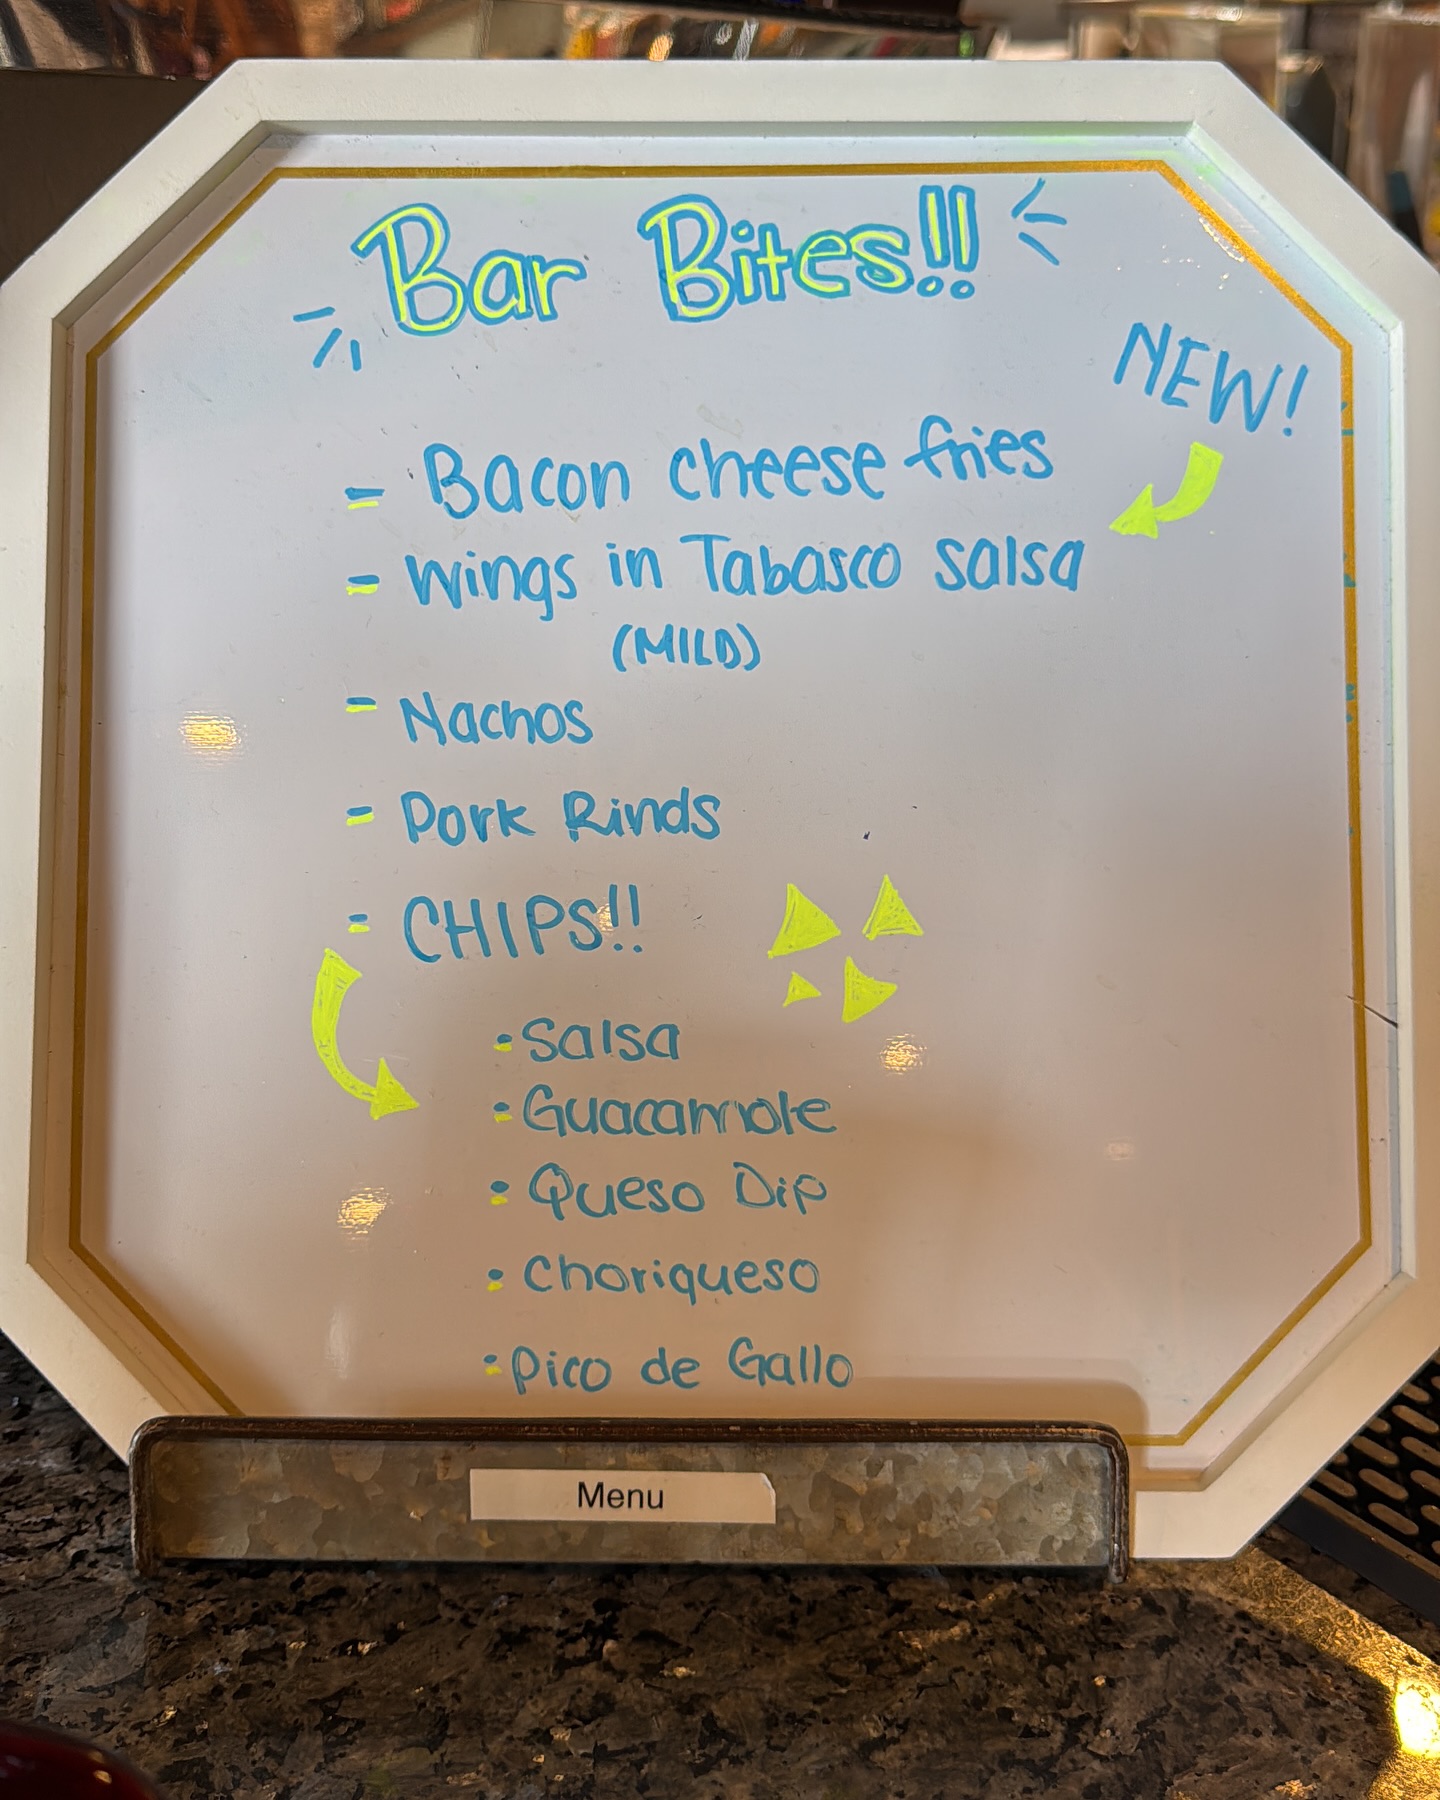 Bar Bites!!
NEW!
- Bacon cheese fries
- Wings in Tabasco salsa
(MILD)
- Nachos
- Pork Rinds
- CHIPS!!
• Salsa
• Guacamole
• Queso Dip
• Choriqueso
• Pico de Gallo
Menu